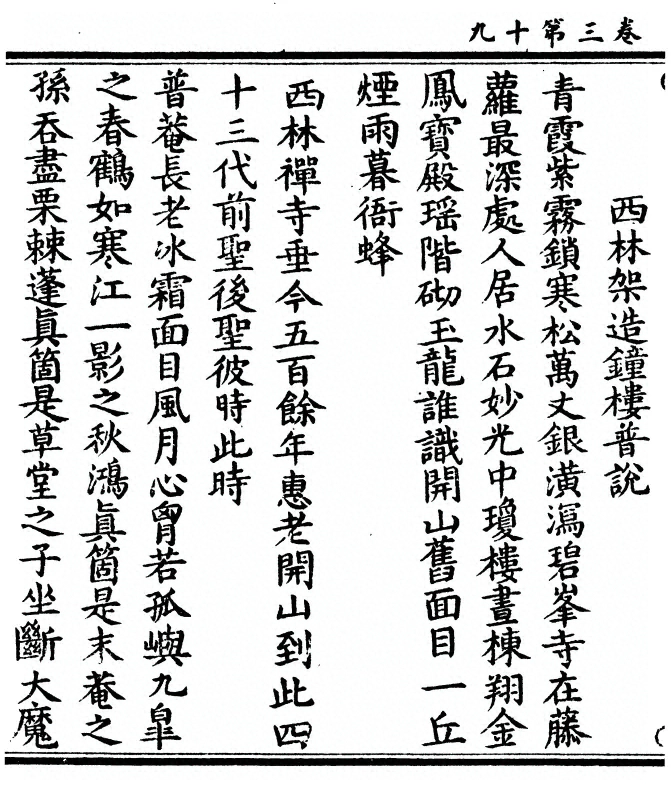 卷三第十九
西林架造鐘樓普說
青霞紫霧鎖寒松萬丈銀潢瀉碧峯寺在藤
蘿最深處人居水石妙光中瓊樓畫棟翔金
鳳寶殿瑶階砌玉龍誰識開山舊面目一丘
煙雨暮衙蜂
西林禪寺垂今五百餘年惠老開山到此四
十三代前聖後聖彼時此時
普菴長老冰霜面目風月心胷若孤嶼九臯
之春鶴如寒江一影之秋鴻眞箇是末菴之
孫吞盡栗棘蓬眞箇是草堂之子坐斷大魔